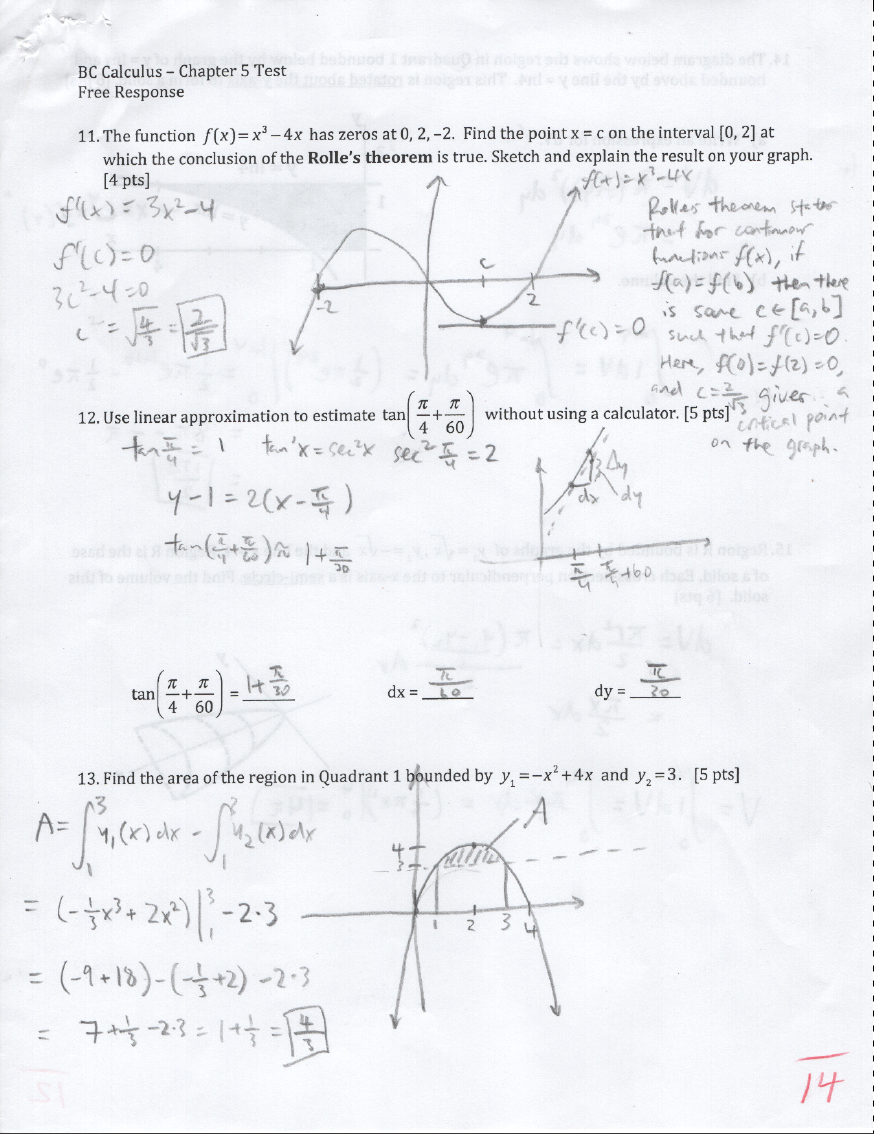 BC Calculus – Chapter 5 Test
Free Response
11. The function f(x) = x³ – 4x has zeros at 0, 2, –2. Find the point x = c on the interval [0, 2] at
which the conclusion of the Rolle's theorem is true. Sketch and explain the result on your graph.
[4 pts]
f'(x) = 3x² – 4
f'(c) = 0
3c² – 4 = 0
c = √(4/3) = 2/√3
f(x) = x³ – 4x
-2
c
2
f'(c) = 0
Rolle's theorem states
that for continuous
functions f(x), if
f(a) = f(b) then there
is some c ∈ [a, b]
such that f'(c) = 0.
Here, f(0) = f(2) = 0,
and c = 2/√3 gives a
critical point
on the graph.
12. Use linear approximation to estimate tan(π/4 + π/60) without using a calculator. [5 pts]
tan π/4 = 1 tan'x = sec²x sec² π/4 = 2
y – 1 = 2(x – π/4)
tan(π/4 + π/60) ≈ 1 + π/30
Δy
dx
dy
π/4 π/4 + 60
tan(π/4 + π/60) = 1 + π/30 dx = π/60 dy = π/30
13. Find the area of the region in Quadrant 1 bounded by y₁ = –x² + 4x and y₂ = 3. [5 pts]
A = ∫₁³ y₁(x) dx – ∫₁³ y₂(x) dx
= (–1/3 x³ + 2x²)|₁³ – 2·3
= (–9 + 18) – (–1/3 + 2) – 2·3
= 7 + 1/3 – 2·3 = 1 + 1/3 = 4/3
A
4
3
1 2 3 4
14